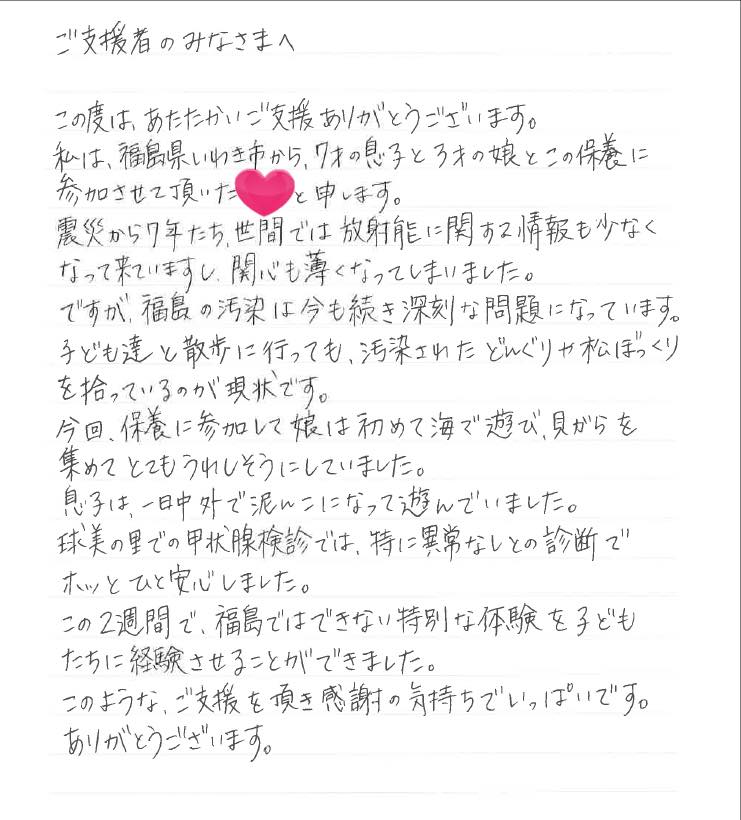 ご支援者のみなさまへ
この度は、あたたかいご支援ありがとうございます。
私は、福島県いわき市から、7才の息子と3才の娘とこの保養に
参加させて頂いた と申します。
震災から7年たち、世間では放射能に関する情報も少なく
なって来ていますし、関心も薄くなってしまいました。
ですが、福島の汚染は今も続き深刻な問題になっています。
子ども達と散歩に行っても、汚染されたどんぐりや松ぼっくり
を拾っているのが現状です。
今回、保養に参加して娘は初めて海で遊び、貝がらを
集めてとてもうれしそうにしていました。
息子は、一日中外で泥んこになって遊んでいました。
球美の里での甲状腺検診では、特に異常なしとの診断で
ホッとひと安心しました。
この2週間で、福島ではできない特別な体験を子ども
たちに経験させることができました。
このような、ご支援を頂き感謝の気持ちでいっぱいです。
ありがとうございます。